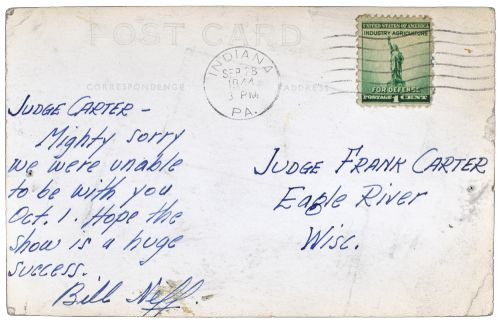 POST CARD
CORRESPONDENCE
ADDRESS
INDIANA
SEP 28
1944
3 PM
PA.
UNITED STATES OF AMERICA
INDUSTRY AGRICULTURE
FOR DEFENSE
POSTAGE 1 CENT
JUDGE CARTER -
Mighty sorry
we were unable
to be with you
Oct. 1. Hope the
show is a huge
success.
Bill Neff.
JUDGE FRANK CARTER
Eagle River
Wisc.